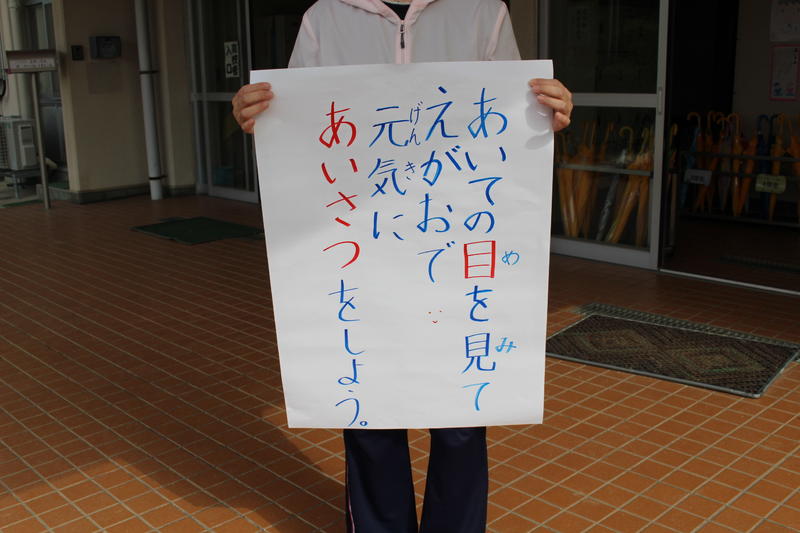 あいての目を見て
えがおで
元気に
あいさつをしよう。
め
み
げん
き